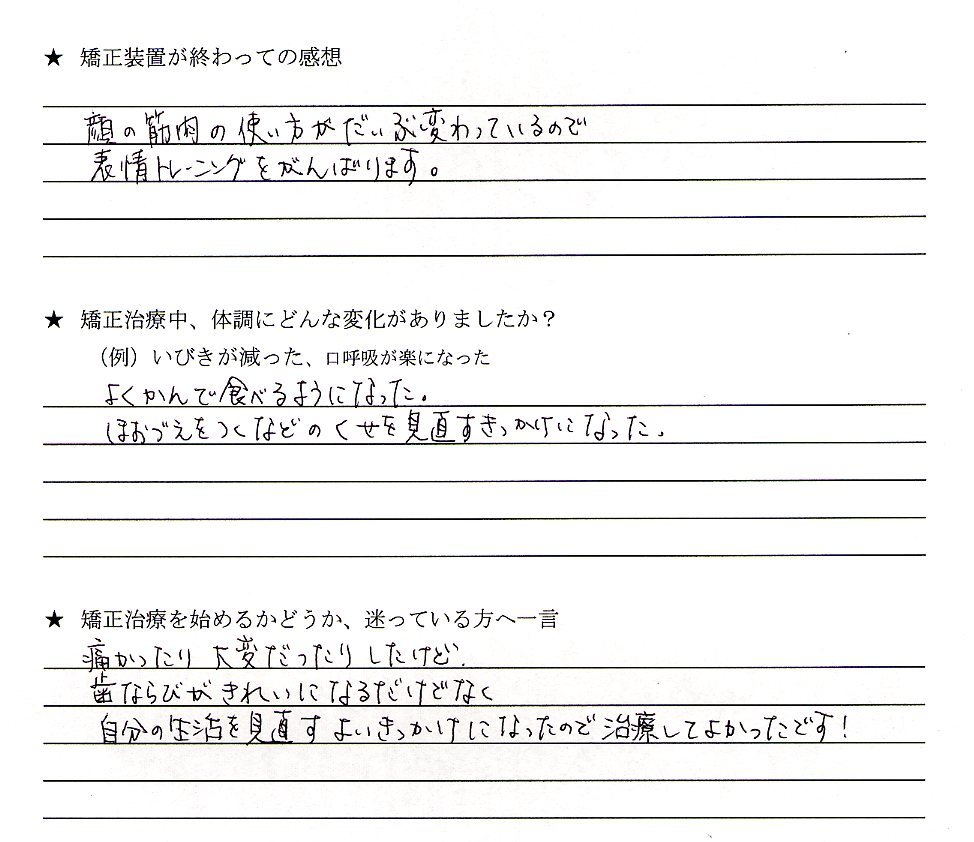 ★ 矯正装置が終わっての感想
顔の筋肉の使い方がだいぶ変わっているので
表情トレーニングをがんばります。
★ 矯正治療中、体調にどんな変化がありましたか？
（例）いびきが減った、口呼吸が楽になった
よくかんで食べるようになった。
ほおづえをつくなどのくせを見直すきっかけになった。
★ 矯正治療を始めるかどうか、迷っている方へ一言
痛かったり大変だったりしたけど、
歯ならびがきれいになるだけでなく
自分の生活を見直すよいきっかけになったので治療してよかったです！